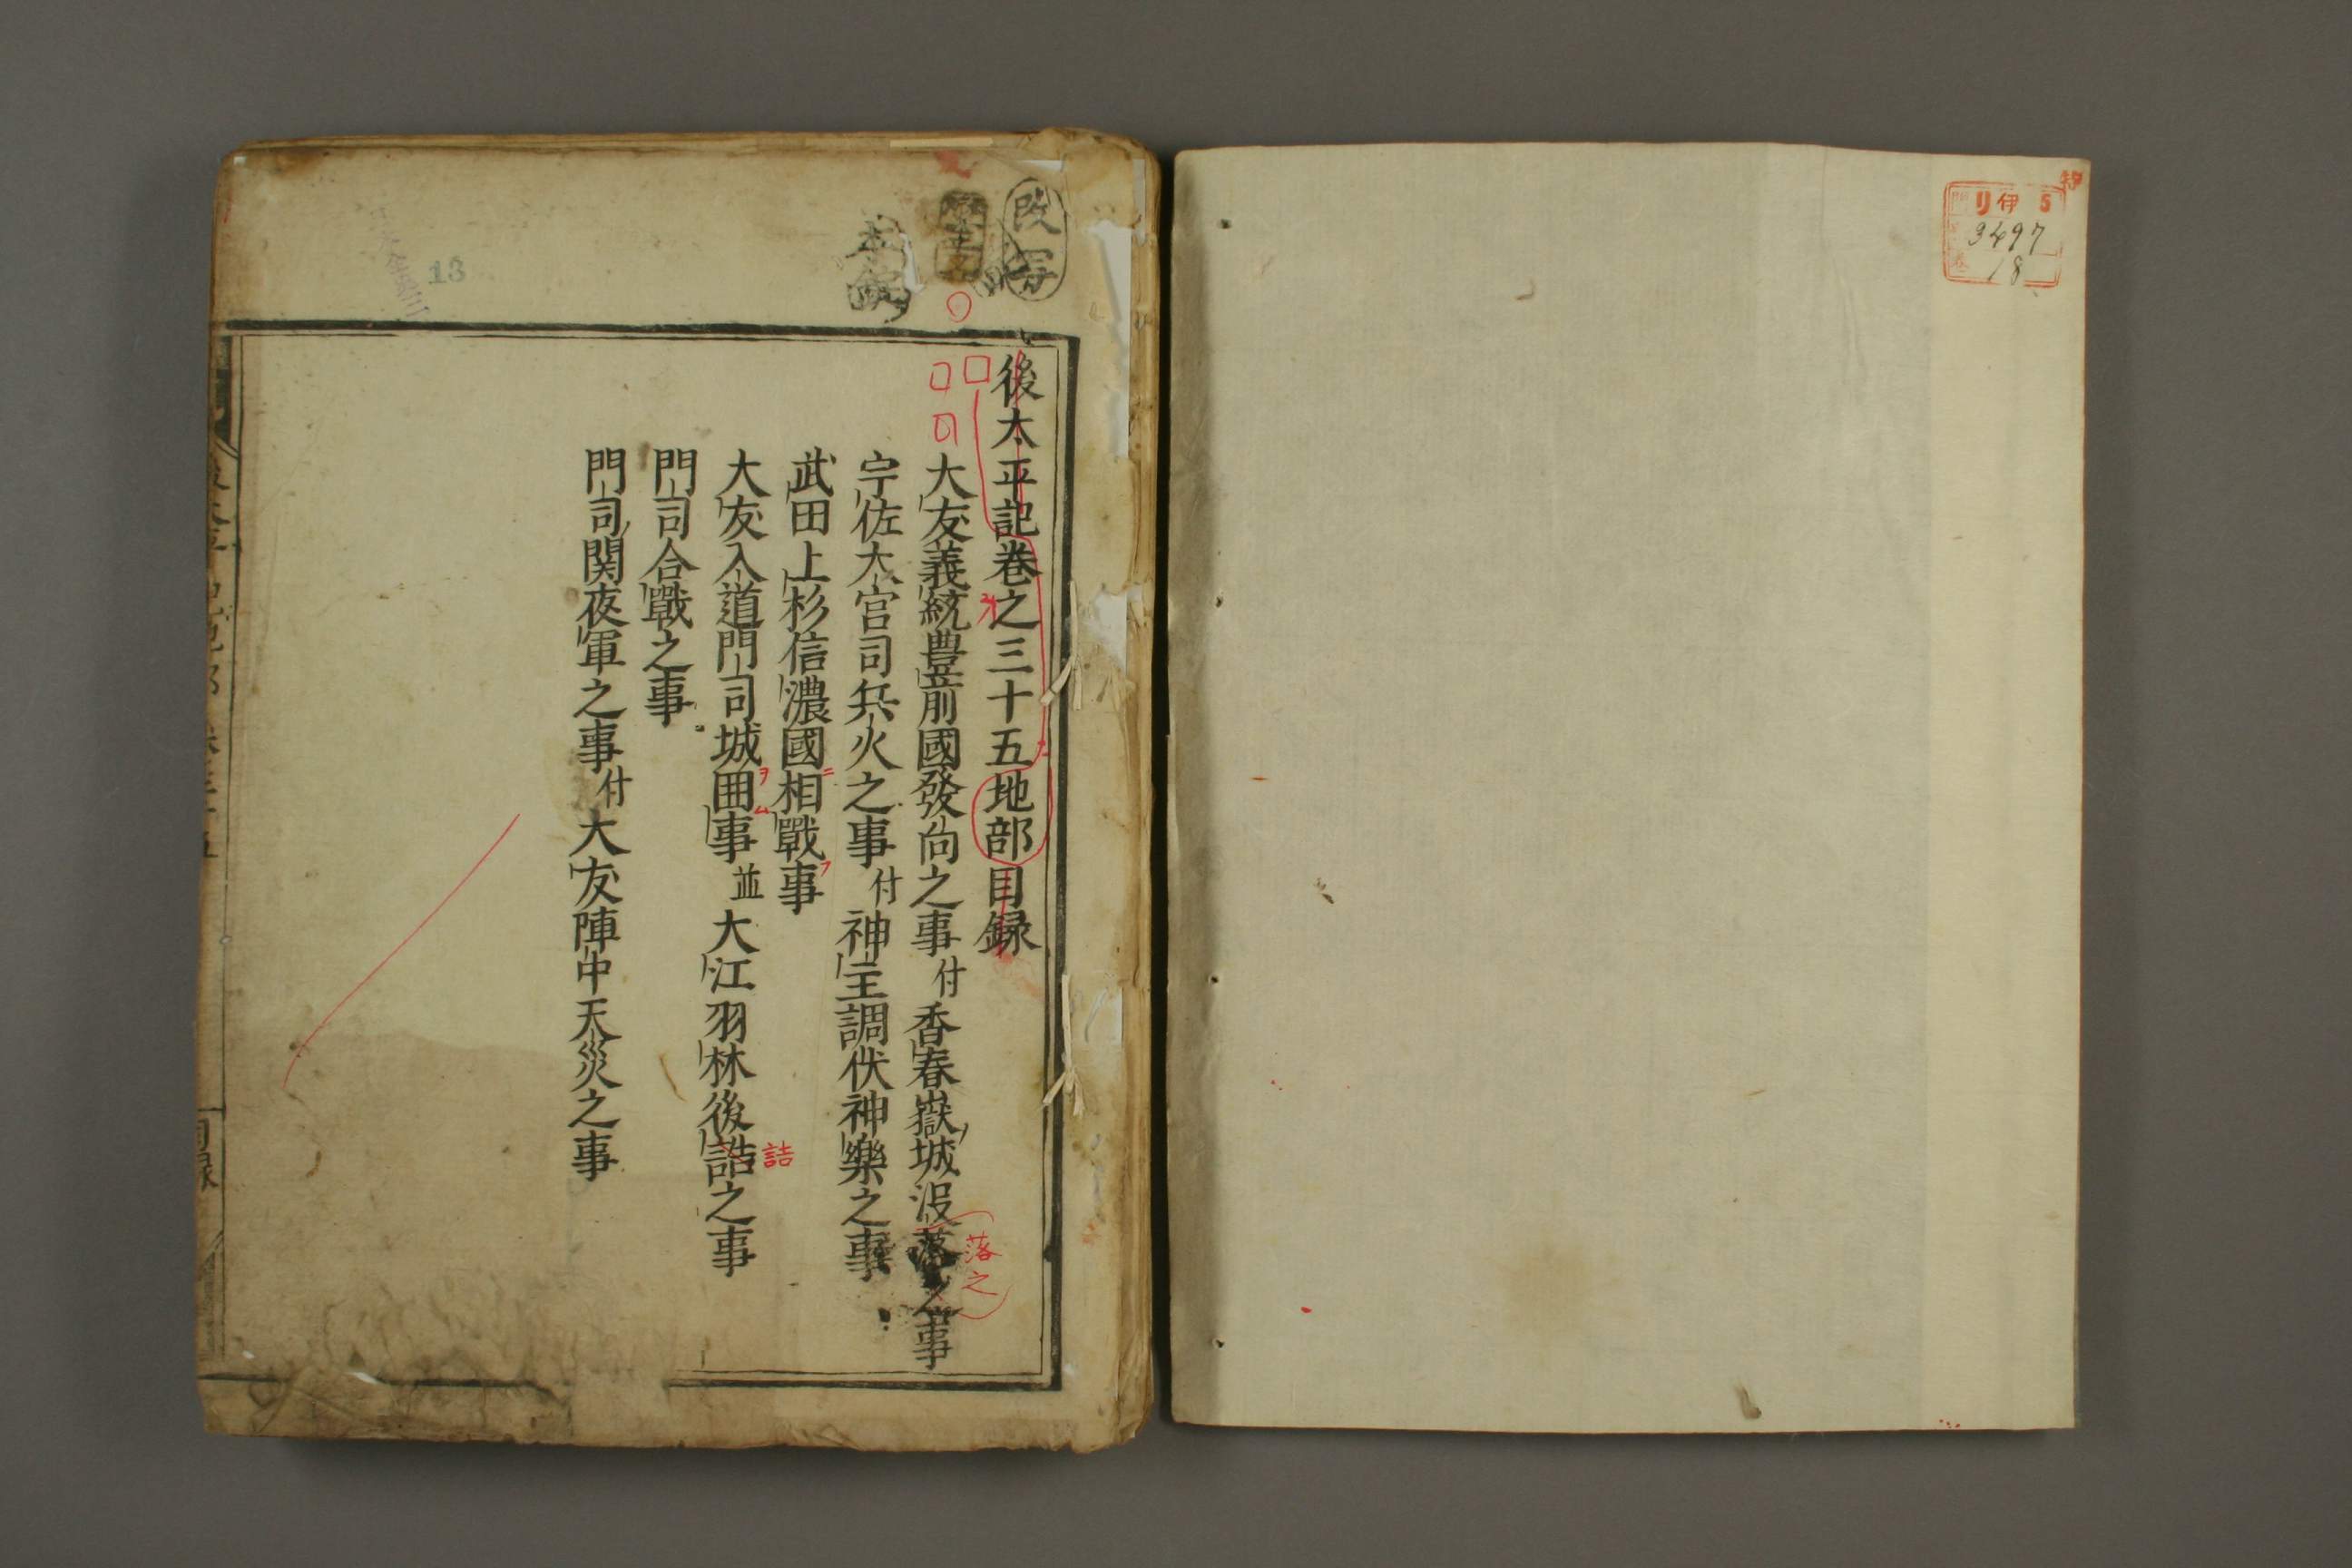 特
リ伊5
3497
18
改写
後太平記巻之三十五地部目録
大友義統豊前國發向之事付香春嶽城没落之事
落之
宇佐大宮司兵火之事付神主調伏神樂之事
武田上杉信濃國相戰事
大友入道門司城囲事並大江羽林後誥之事
詰
門司合戰之事
門司関夜軍之事付大友陣中天災之事
13
目録